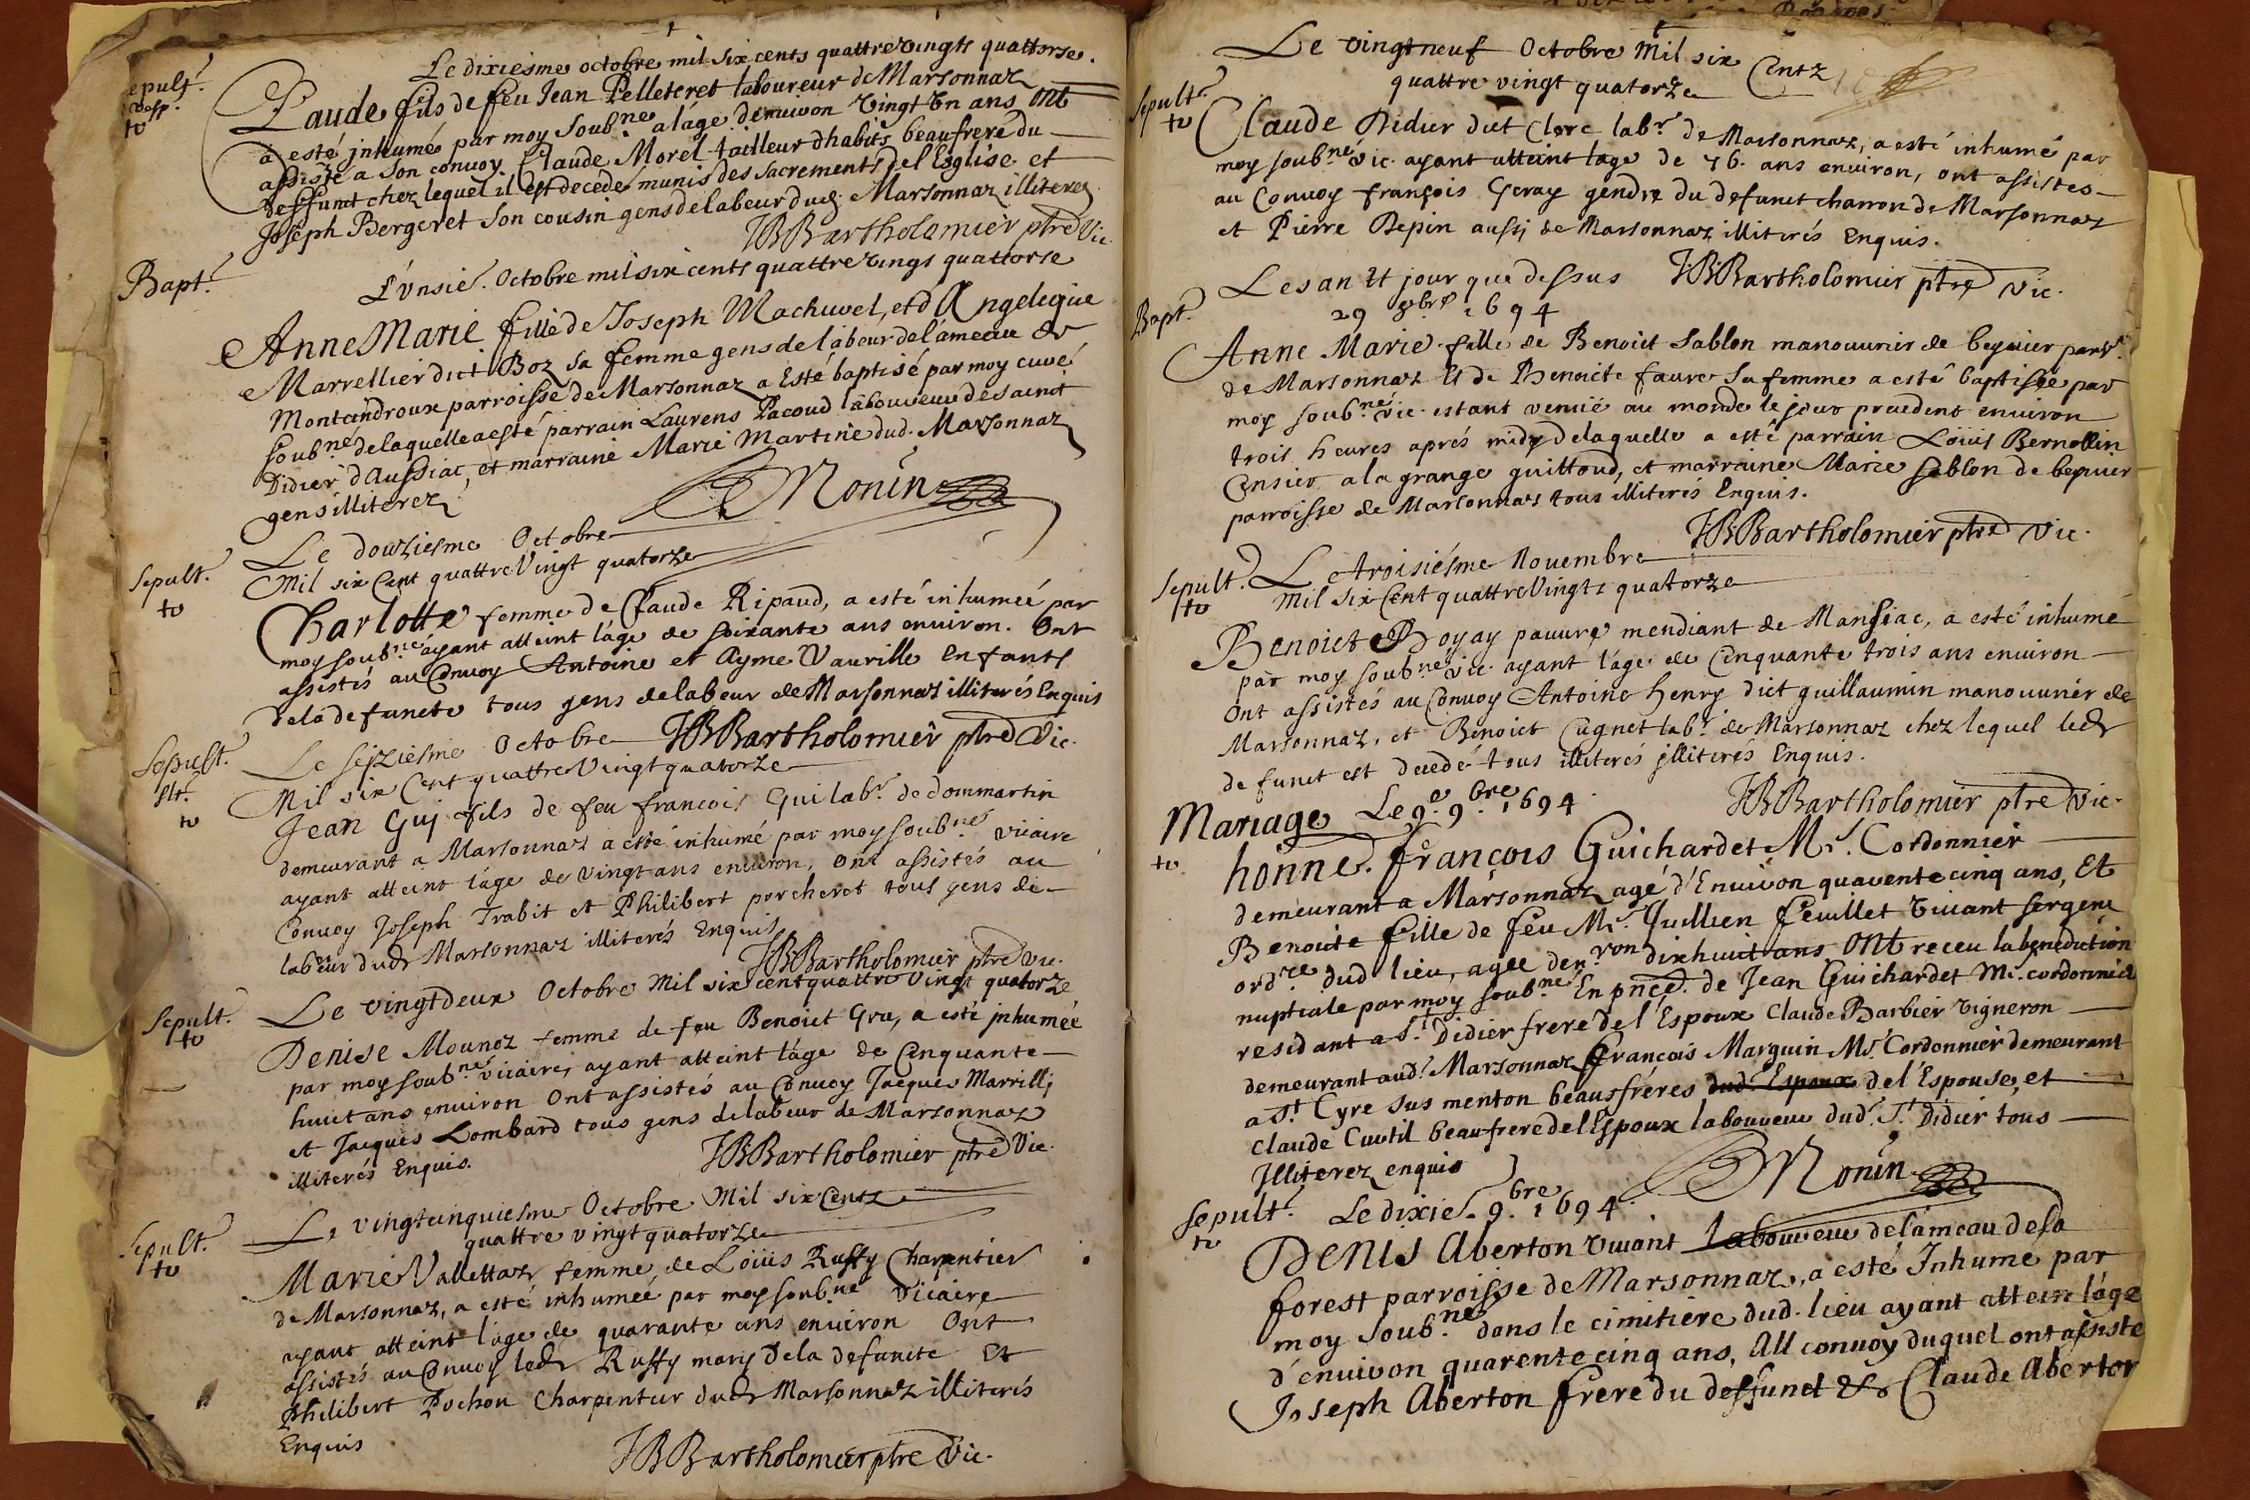 Le dixiesme octobre mil six cents quattre vingts quattorse.
Sepult.
to
Claude fils de feu Jean Pelleteret laboureur de Marsonnaz
à esté jnhumé par moy soub.né a láge d'enuiron vingt vn ans ont
assisté a son convoy Claude Morel tailleur dhabits beaufrere du
deffunct chez lequel il est decedé munis des sacrements del Esglise et
Joseph Bergeret son cousin gens de labeur dud. Marsonnaz illiterez
JBBartholomier ptre Vic.
Bapt.
L'vnsié. Octobre mil six cents quattre vings quattorse
Anne Marie fille de Joseph Machuvel, et d'Angelique
Marvellier dict Boz sa femme gens de labeur de lámeau de
Montcindroux parroisse de Marsonnaz a Esté baptisé par moy curé
soub.né de laquelle a esté parrain Laurens Pacoud laboureur de sainct
Didier d'Aussiac, et marraine Marie Martine dud. Marsonnaz
gens illiterez
Monin
Le douziesme Octobre
Mil six Cent quattre Vingt quatorze
Sepult.
to
Charlotte femme de Claude Ripaud, a esté inhumeé par
moy soub.né ayant atteint láge de soixante ans enuiron. Ont
assistés au Convoy Antoine et Ayme Vaurille Enfants
de la defuncte tous gens de labeur de Marsonnaz illiterés Enquis
JBBartholomier ptre Vic.
Le seiziesme Octobre
Sepult.
to
Mil six Cent quattre Vingt quatorze
Jean Guj fils de feu francois Gui lab.r de dommartin
demeurant a Marsonnaz a esté inhumé par moy soub.né vicaire
ayant atteint láge de vingt ans enuiron, ont assistés au
Convoy Joseph Trabit et Philibert porcheret tous gens de
labeur dud. Marsonnaz illiterés Enquis
JBBartholomier ptre Vic.
Le vingt deux Octobre Mil six cent quattre Vingt quatorze
Sepult.
to
Denise Mounoz femme de feu Benoict Gru, a esté jnhumeé
par moy soub.né vicaire, ayant atteint láge de Cinquante
huict ans enuiron Ont assistés au Convoy Jacques Marrillj
et Jacques Lombard tous gens de labeur de Marsonnaz
illiterés Enquis.
JBBartholomier ptre Vic.
Le Vingt cinquiesme Octobre Mil six Cents
quattre vingt quatorze
Sepult.
to
Marie Vallettaz femme de Loüis Ruffy Charpentier
de Marsonnaz, a esté inhumeé par moy soub.né Vicaire
ayant atteint láge de quarante ans enuiron Ont
assistés au Convoy led. Ruffy mary de la defuncte Et
Philibert Pochon Charpentier dud. Marsonnaz illiterés
Enquis
JBBartholomier ptre Vic.
Le vingt neuf Octobre Mil six Centz
quattre vingt quatorze
Sepult.
to
Claude Didier dict Clerc lab.r de Marsonnaz, a esté inhumé par
moy soub.né vic. ayant atteint lage de 76. ans enuiron, ont assistes
au Convoy françois Geray gendre du defunct charron de Marsonnaz
et Pierre Pepin aussj de Marsonnaz illiterés Enquis.
JBBartholomier ptre Vic.
Les an et jour que dessus
29 8bre 1694
Bapt.
Anne Marie fille de Benoict Sablon manouurier de beyuier parr.
de Marsonnaz Et de Benoicte faure sa femme a esté baptisée par
moy soub.né vic. estant venuë au monde le jour precedent enuiron
trois heures aprés midy de laquelle a esté parrain Loüis Bernollin
Censier a la grange guittoud, et marraine Marie Sablon de beyuier
parroisse de Marsonnaz tous illiterés Enquis.
JBBartholomier ptre Vic.
Le troisiésme Nouembre
Sepult.
to
Mil six Cent quattre Vingts quatorze
Benoict Boyay pauure mendiant de Mansiac, a esté inhumé
par moy soub.né vic. ayant láge de Cinquante trois ans enuiron
Ont assistés au Convoy Antoine henry dict guillaumin manouurier de
Marsonnaz, et Benoict Cugnet lab.r de Marsonnaz chez lequel led.
defunct est decedé tous illiterés jlliterés Enquis.
JBBartholomier ptre Vic.
Mariage Le 9.e 9.bre 1694
to
honne. françois Guichardet M.e Cordonnier
demeurant a Marsonnaz agé d'Enuiron quarente cinq ans, Et
Benoite fille de feu M.e Jullien feuillet viuant sergent
ord.re dud lieu, agée d'en.ron dix huict ans Ont receu la benediction
nuptiale par moy soub.né En pnce. de Jean Guichardet Me. cordonnier
residant a S.t Didier frere del Espoux Claude Barbier vigneron
demeurant aud. Marsonnaz françois Marguin M.e Cordonnier demeurant
a S.t Cyre sus menton beausfréres dud. Espoux del'Espouse, et
Claude Curtil beaufrere del'Espoux laboureur dud. S.t Didier tous
Jlliterez enquis
Monin
Sepult.
to
Le dixié. 9.bre 1694.
Denis Aberton viuant Laboureur de lámeau de la
forest parroisse de Marsonnaz, a esté Inhumé par
moy soub.né dans le cimitiere dud. lieu ayant attein láge
d'enuiron quarente cinq ans, Au convoy duquel ont assisté
Joseph Aberton frere du deffunct & Claude Aberton